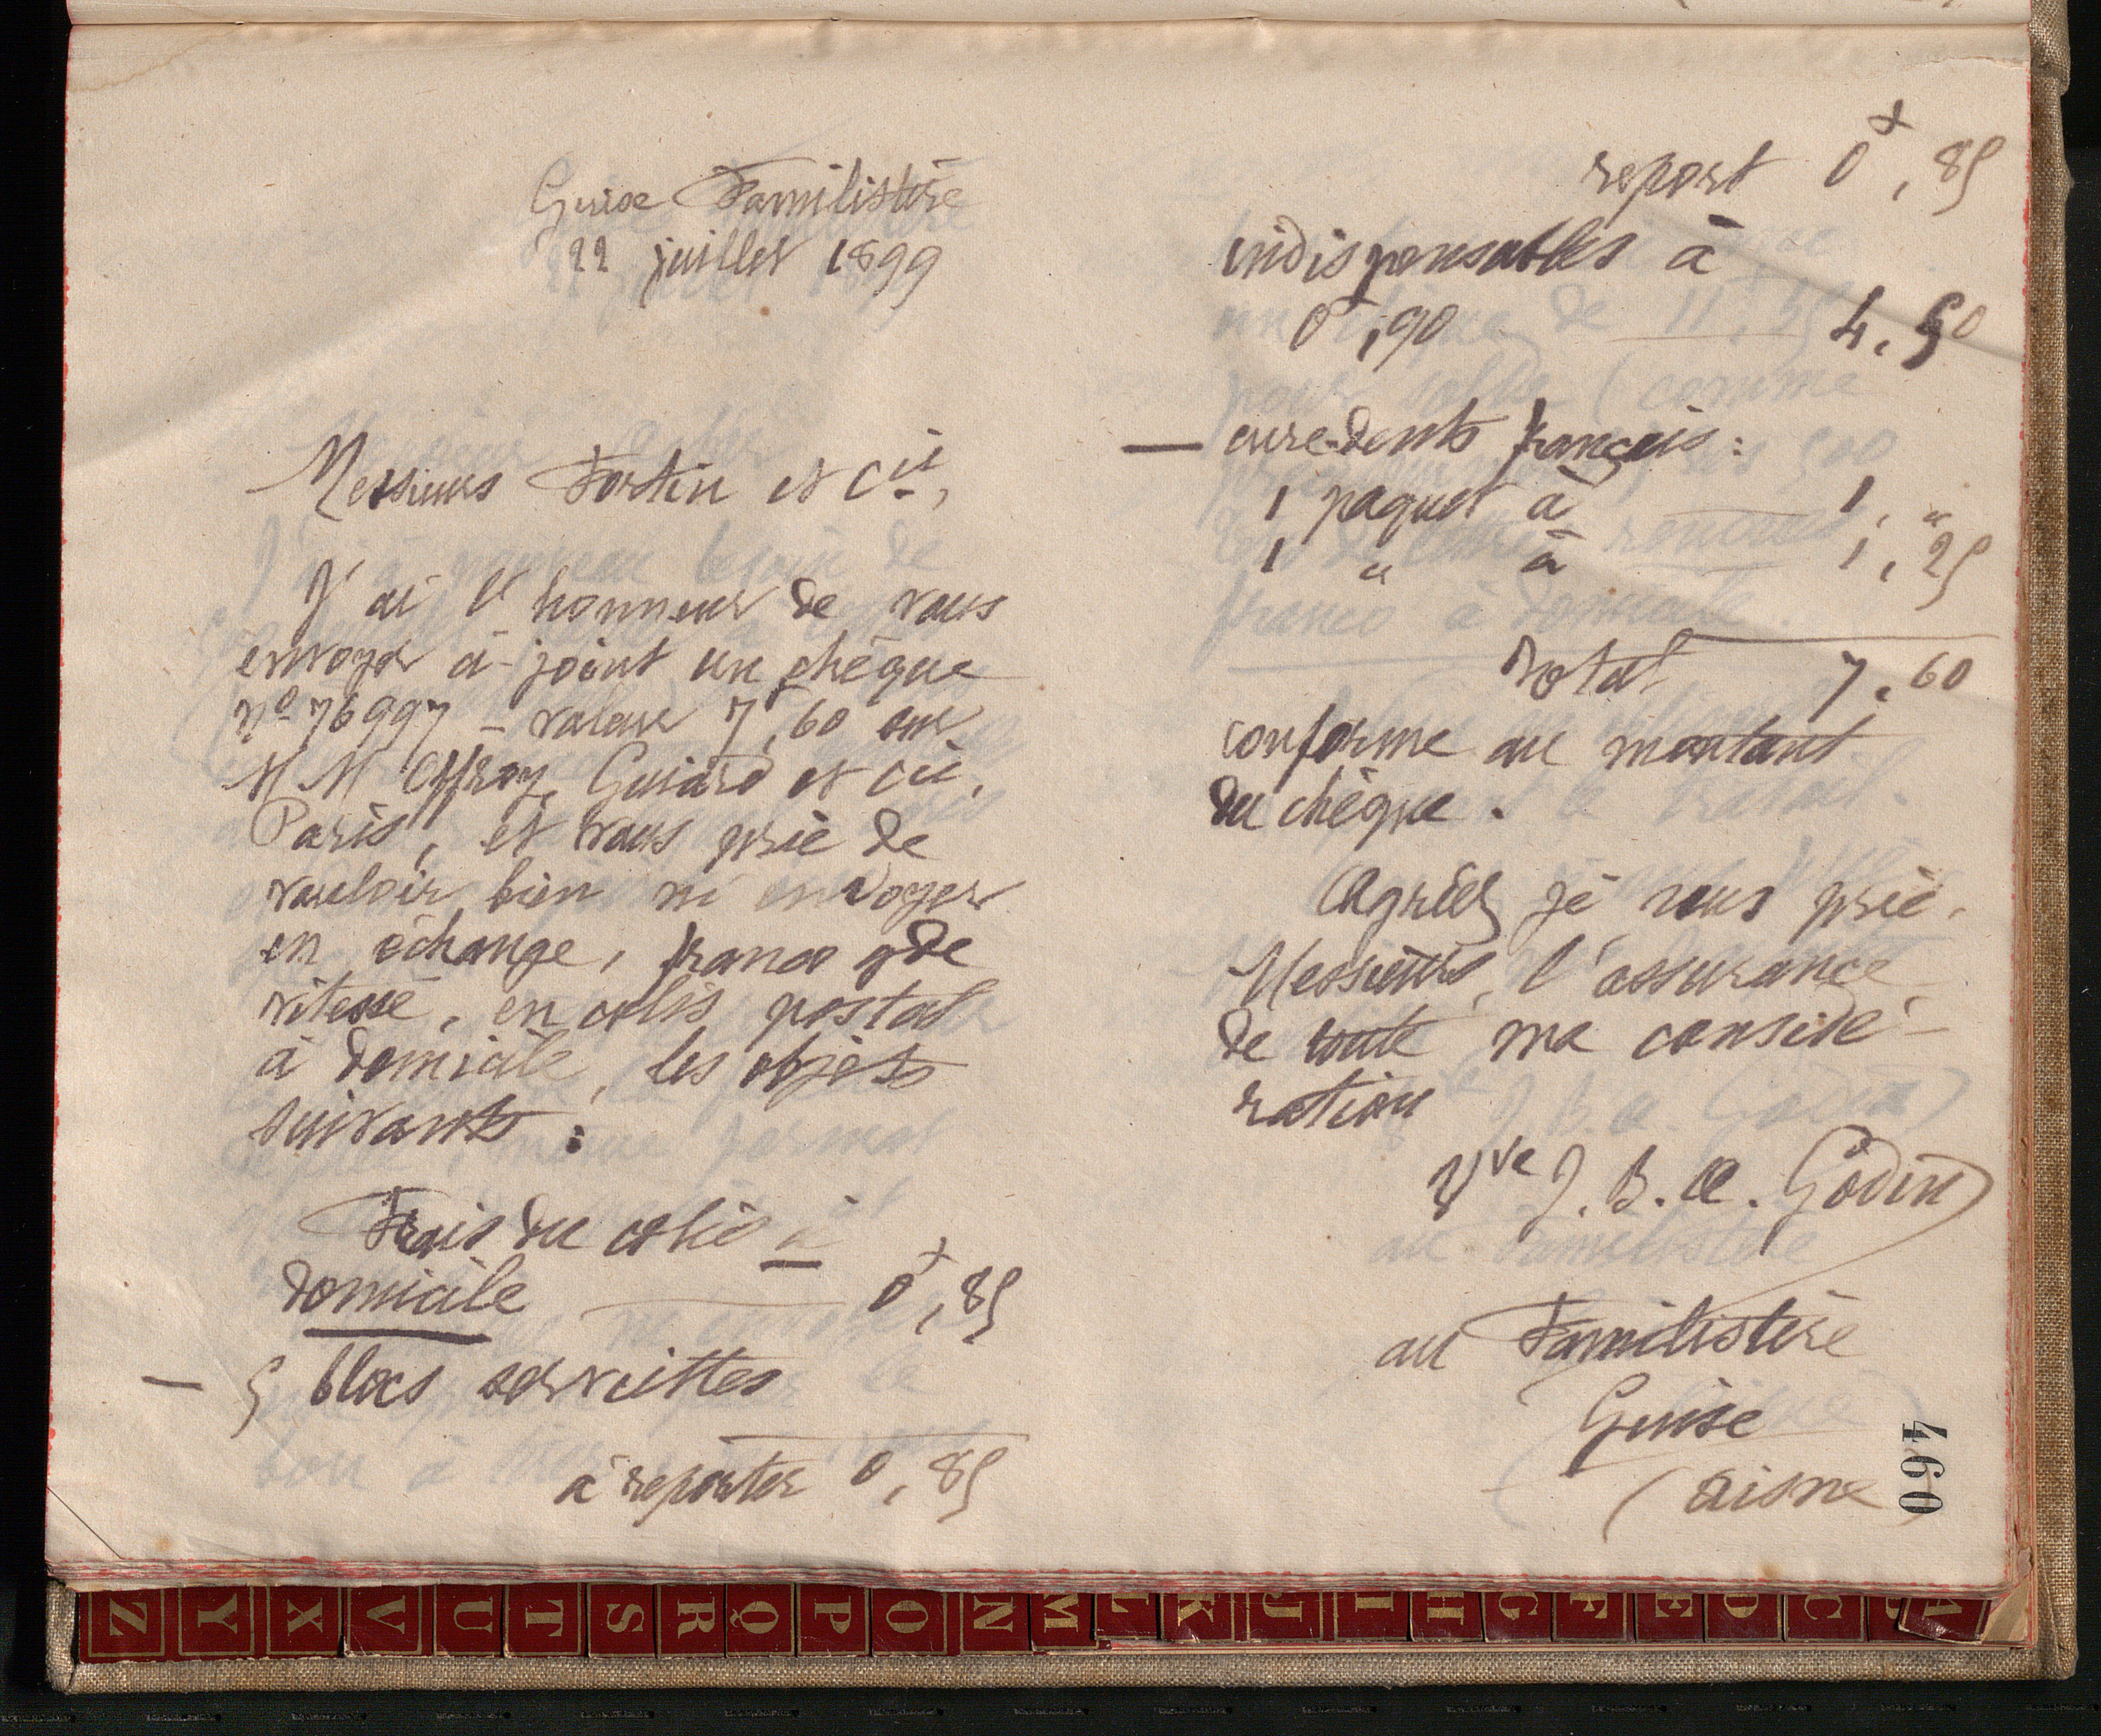 Guise Familistère
22 juillet 1899
Messieurs Fortin et Cie,
J'ai l'honneur de vous
envoyer ci-joint un chèque
No 76997 – valeur 7f,60 sur
MM Offroy, Guiard et Cie,
Paris, et vous prie de
vouloir bien m'envoyer
en échange, franco gde
vitesse, en colis postal
à domicile, les objets
suivants :
Frais du colis à
domicile 0f,85
– 5 blocs serviettes
à reporter 0,85
report 0f,85
indispensables à
0f,90 4,50
– cure-dents français :
1 paquet à 1, "
1 " à 1,25
Total 7.60
conforme au montant
du chèque.
Agréez je vous prie,
Messieurs, l'assurance
de toute ma considé-
ration
Vve J. B. A. Godin
au Familistère
Guise
(Aisne)
490
Z Y X V U T S R Q P O N M L K J I H G F E D C B A